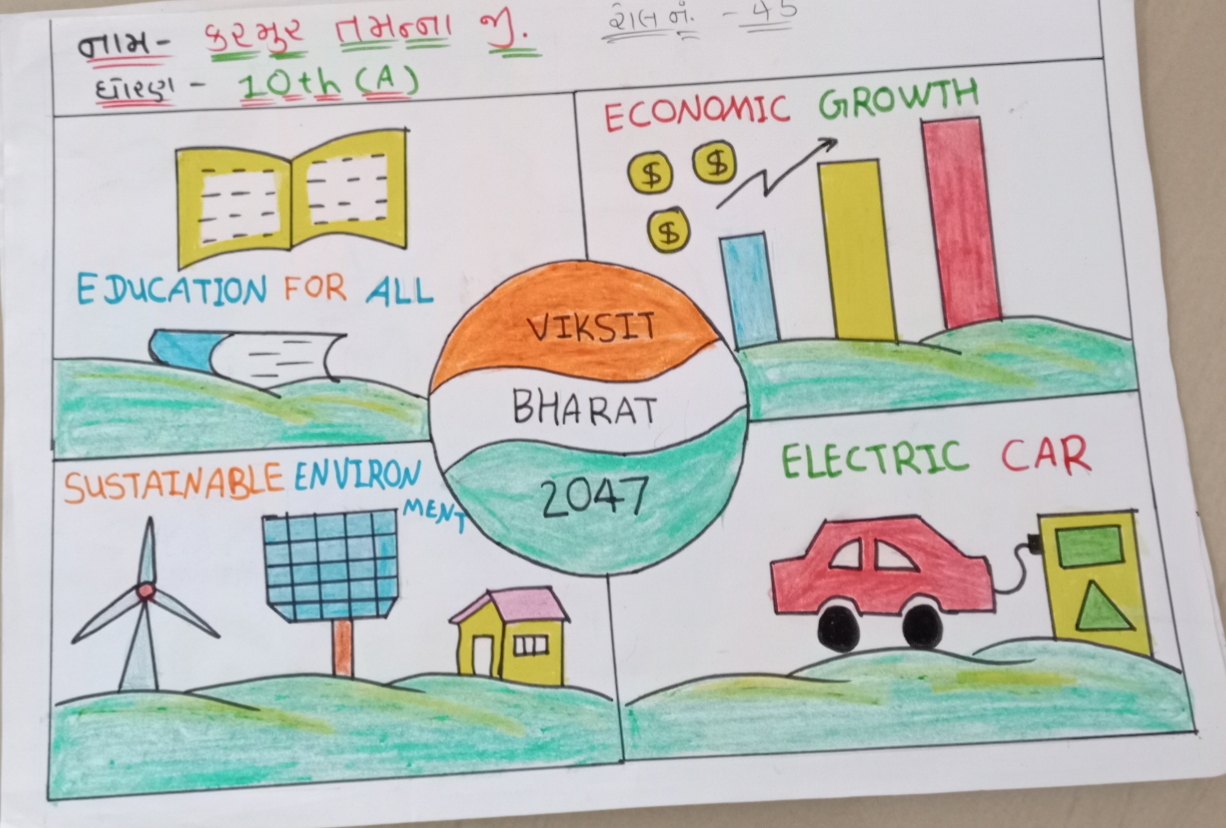 નામ- કરમુર તમન્ના જી.
રોલ નં. - 45
ધોરણ - 10th (A)
ECONOMIC GROWTH
$ $
$
EDUCATION FOR ALL
VIKSIT
BHARAT
2047
SUSTAINABLE ENVIRON
MENT
ELECTRIC CAR